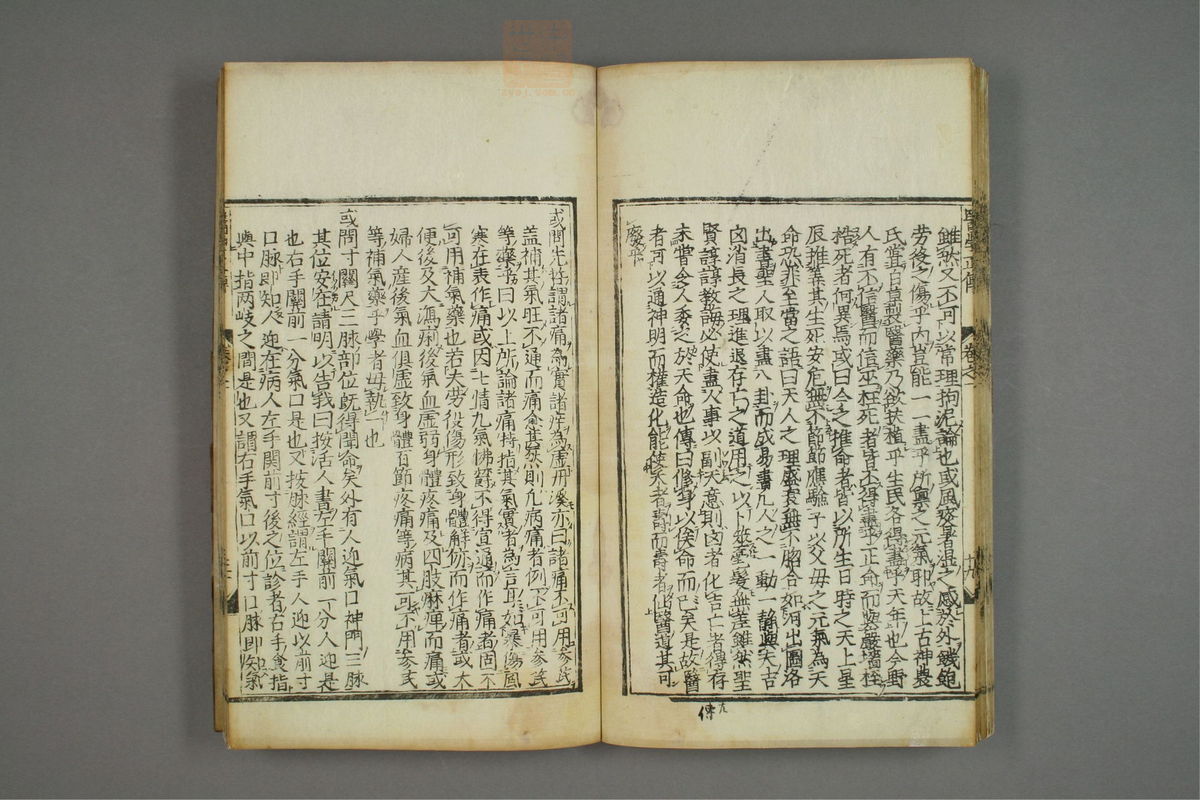 雖然又不可以常理拘泥論也或風寒暑濕之感於外饑飽
勞役之傷乎內豈能一一盡乎所稟之元氣耶故上古神農
氏嘗百草製醫藥乃欲扶植乎生民各得盡乎天年也今野
人有不信醫而信巫枉死者皆不得盡乎正命而與巖墻桎
梏死者何異焉或曰今之推命者皆以所生日時之天上星
辰推筭其生死安危無不節節應驗子以父母之元氣為天
命恐非至當之語曰天人之理盛衰無不脗合如河出圖洛
出書聖人取以畫八卦而成易書凡人之一動一靜與夫吉
凶消長之理進退存亡之道用之以卜筮毫髮無差雖然聖
賢諄諄教誨必使盡人事以副天意則凶者化吉亡者得存
未嘗令人委之於天命也傳曰修身以俟命而已矣是故醫
者可以通神明而權造化能使夭者壽而壽者仙醫道其可
廢乎
或問先哲謂諸痛為實諸痒為虛丹溪亦曰諸痛不可用參芪
蓋補其氣旺不通而痛愈甚然則凡病痛者例不可用參芪
等藥乎曰以上所論諸痛特指其氣實者為言耳如暴傷風
寒在表作痛或因七情九氣怫鬱不得宣通而作痛者固不
可用補氣藥也若夫勞役傷形致身體解㑊而作痛者或大
便後及大瀉痢後氣血虛弱身體疼痛及四肢麻痺而痛或
婦人產後氣血俱虛致身體百節疼痛等病其可不用參芪
等補氣藥乎學者毋執一也
或問寸關尺三脉部位既得聞命矣外有人迎氣口神門三脉
其位安在請明以告我曰按活人書左手關前一分人迎是
也右手關前一分氣口是也又按脉經謂左手人迎以前寸
口脉即知人迎在病人左手關前寸後之位診者右手食指
與中指两岐之間是也又謂右手氣口以前寸口脉即知氣